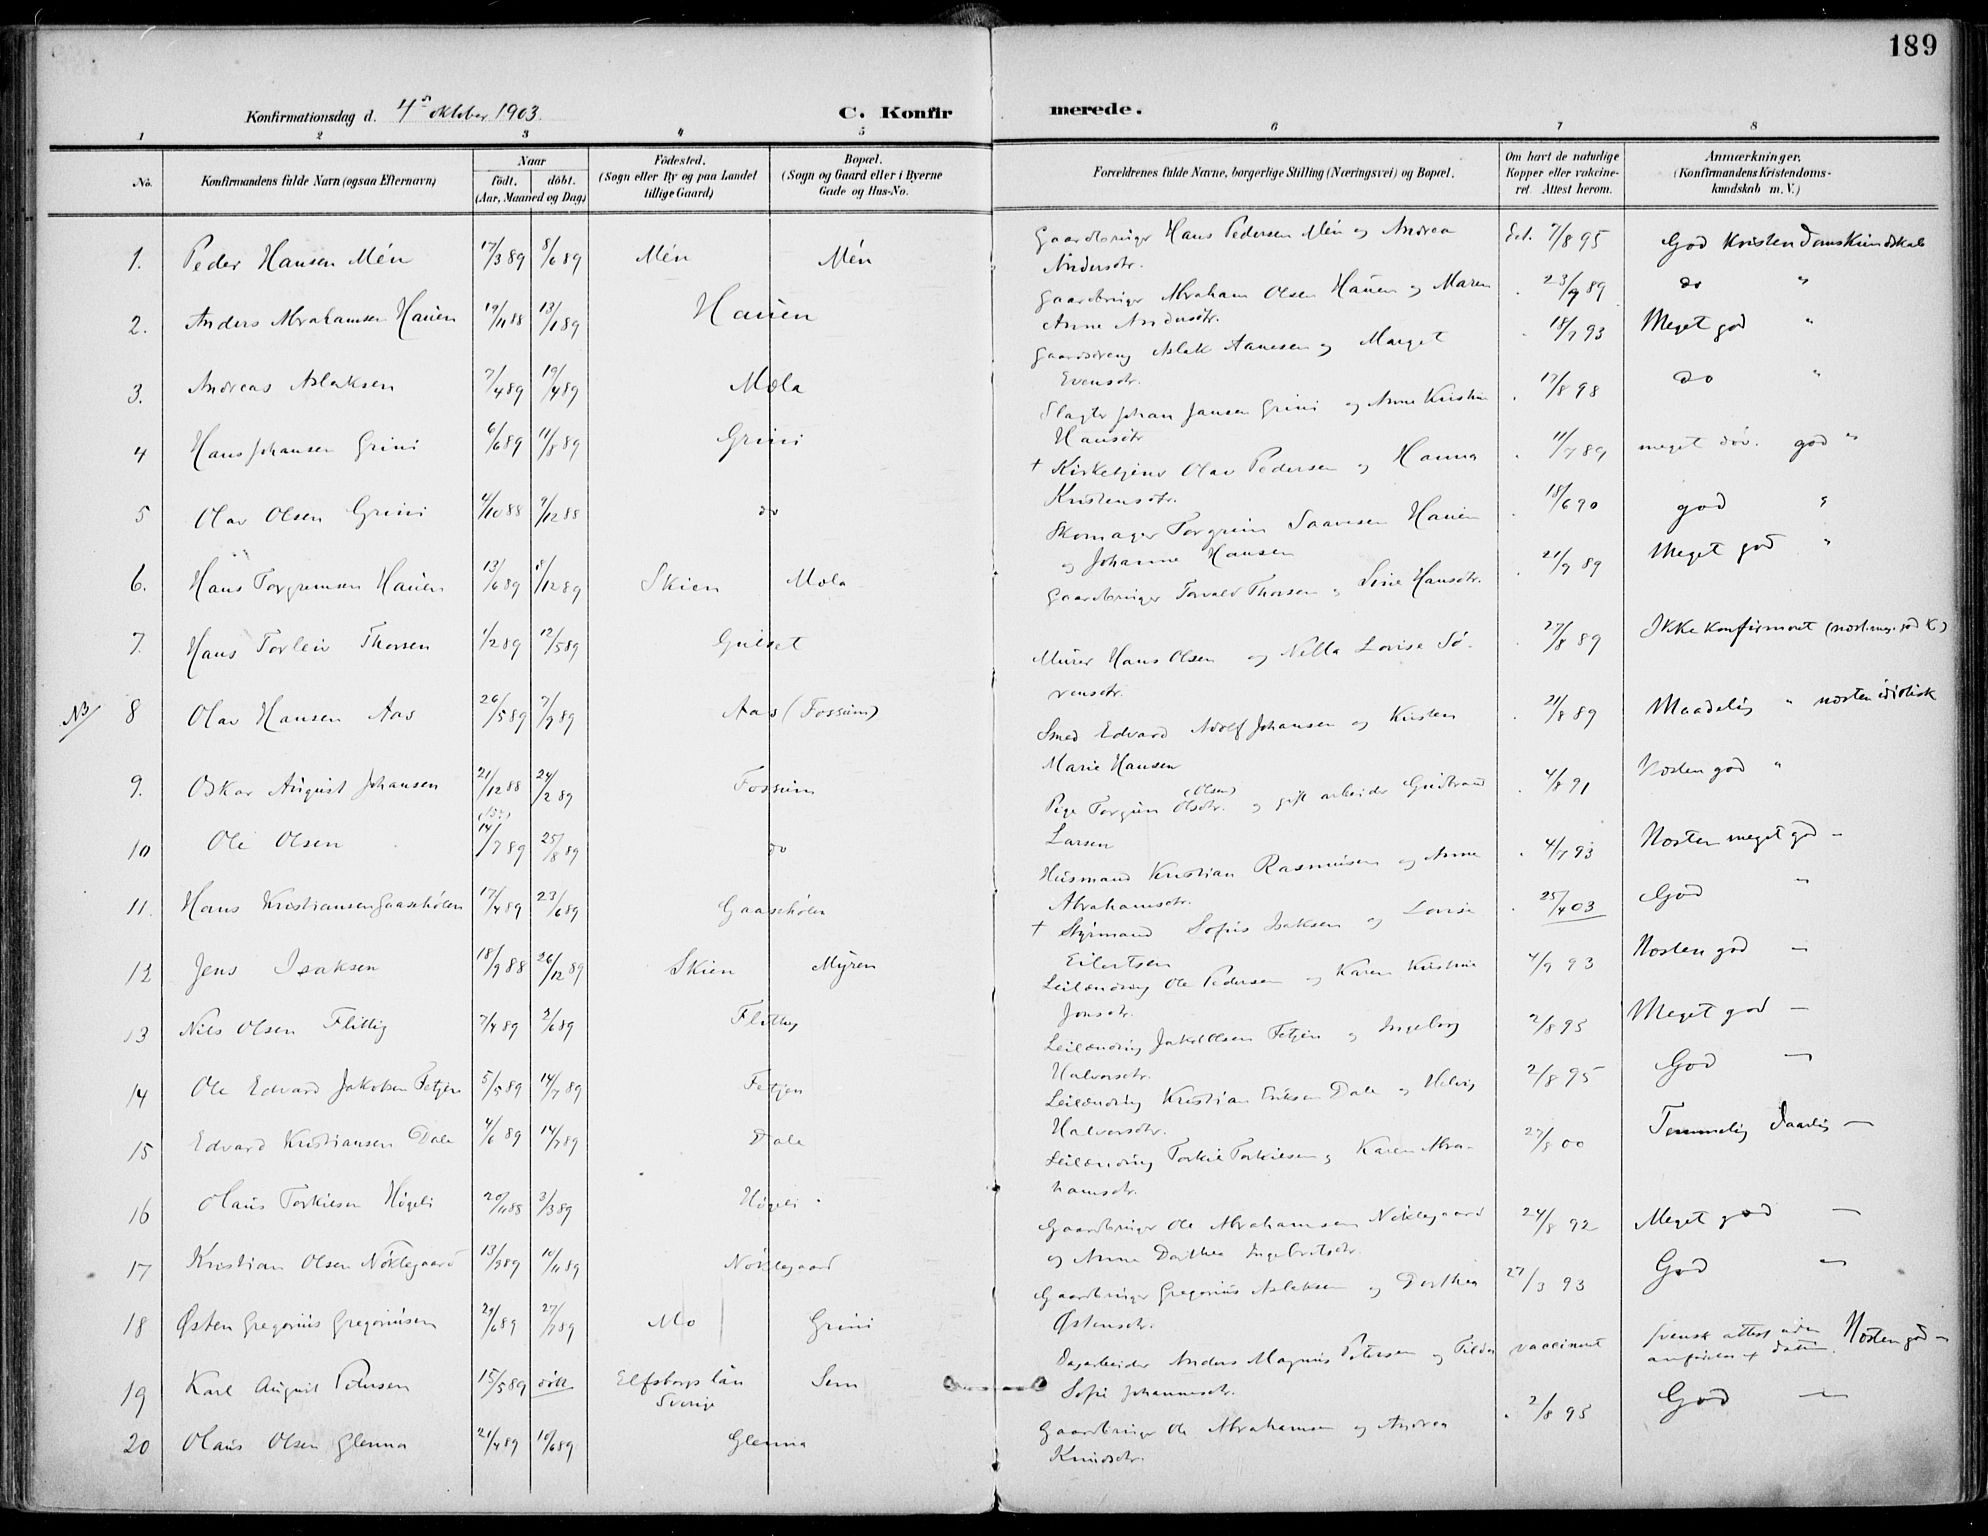 189
Konfirmationsdag d. 4de oktober 1903.
C. Konfir merede.
1 2 3 4 5 6 7 8
No.
Konfirmandens fulde Navn (ogsaa Efternavn)
Naar
födt. döbt.
(Aar, Maaned og Dag)
Födested.
(Sogn eller By og paa Landet
tillige Gaard)
Bopæl.
(Sogn og Gaard eller i Byerne
Gade og Hus-No.
Forældrenes fulde Navne, borgerlige Stilling (Næringsvei) og Bopæl.
Om havt de naturlige
Kopper eller vakcine-
ret. Attest herom.
Anmærkninger.
(Konfirmandens Kristendoms-
kundskab m. V.)
1. Peder Hansen Mén 17/3 89 8/6 89 Mén Mén Gaardbruger Hans Pedersen Mén og Andrea
Andersdtr. 7/8 95 God Kristendomskundskab
2. Anders Abrahamsen Hauen 19/11 88 13/1 89 Hauen Gaardbruger Abraham Olsen Hauen og Maren
Anne Andersdtr. 23/9 89 do "
3. Andreas Aslaksen 7/4 89 19/4 89 Mæla Aslak Aanesen og Marget
Evensdtr. 18/7 93 Meget god "
4 Hans Johansen Grini 6/6 89 11/8 89 Grini Slagter Johan Jansen Grini og Anne Kristin
Hansdtr 17/8 98 do "
5 Olav Olsen Grini 4/10 88 9/12 88 do + Kirketjener Olav Pedersen og Hanna
Kristensdtr. 11/7 89 meget döv. god "
6. Hans Torgrimsen Hauen 13/6 89 8/12 89 Skien Mæla Skomager Torgrim Saavesen Hauen
og Johanne Hansen 18/6 90 god "
7. Hans Torleiv Thorsen 1/2 89 12/5 89 Gulset Gaardbruger Torvald Thorsen og Sine Hansdtr. 21/9 89 Meget god "
NB/ 8 Olav Hansen Aas 26/5 89 7/9 89 Aas (Fossum) Murer Hans Olsen og Nella Lovise Sö-
rensdtr. 27/8 89 Ikke konfirmeret
9. Oskar August Johansen 21/12 88 24/2 89 Fossum Smed Edvard Adolf Johansen og Kirsten
Marie Hansen 21/8 89 Maadelig " næsten idiotisk
10 Ole Olsen 14/7 89 25/8 89 do Pige Torgun Olsdtr. (Olsen) og gift arbeider Gudbrand
Larsen 4/8 91 Næsten god "
11. Hans Kristiansen Gaasehölen 17/4 89 23/6 89 Gaasehölen Husmand Kristian Rasmusen og Anne
Abrahamsdtr. 4/7 93 Næsten meget god -
12 Jens Isaksen 18/9 88 26/12 89 Skien Myren + Styrmand Sofus Isaksen og Lovise
Eilertsen 25/4 03 God "
13 Nils Olsen Flittig 7/4 89 2/6 89 Flittig Leilænding Ole Pedersen og Karen Kristine
Jonsdtr. 4/9 93 Næsten god -
14 Ole Edvard Jakobsen Fetjen 5/5 89 14/7 89 Fetjen Leilænding Jakob Olsen Fetjen og Ingeborg
Halvorsdtr. 2/8 95 Meget god -
15 Edvard Kristiansen Dale 4/6 89 14/7 89 Dale Leilænding Kristian Eriksen Dale og Helvig
Halvorsdtr. 2/8 95 God -
16 Olaus Torkilsen Högeli 20/11 88 3/3 89 Högeli Leilænding Torkil Torkilsen og Karen Abra-
hamsdtr. 27/8 00 Temmelig daarlig -
17 Kristian Olsen Nöklegaard 13/9 89 10/11 89 Nöklegaard Gaardbruger Ole Abrahamsen Nöklegaard
og Anne Dorthea Ingebretsdtr. 24/8 92 Meget god -
18 Østen Gregorius Gregoriusen 29/6 89 27/7 89 Mo Grini Gaardbruger Gregorius Aslaksen og Dorthea
Østensdtr. 27/3 93 God -
19 Karl August Petersen 15/5 89 Elfsborgs län
Sverige Sem Dagarbeider Anders Magnus Petersen og Tilda
Sofie Johannesdtr. vaccineret svensk attest uden
anförelse af datum. Næsten god -
20 Olaus Olsen Glenna 21/4 89 10/6 89 Glenna Gaardbruger Ole Abrahamsen og Andrea
Knudsdtr. 2/8 95 God -